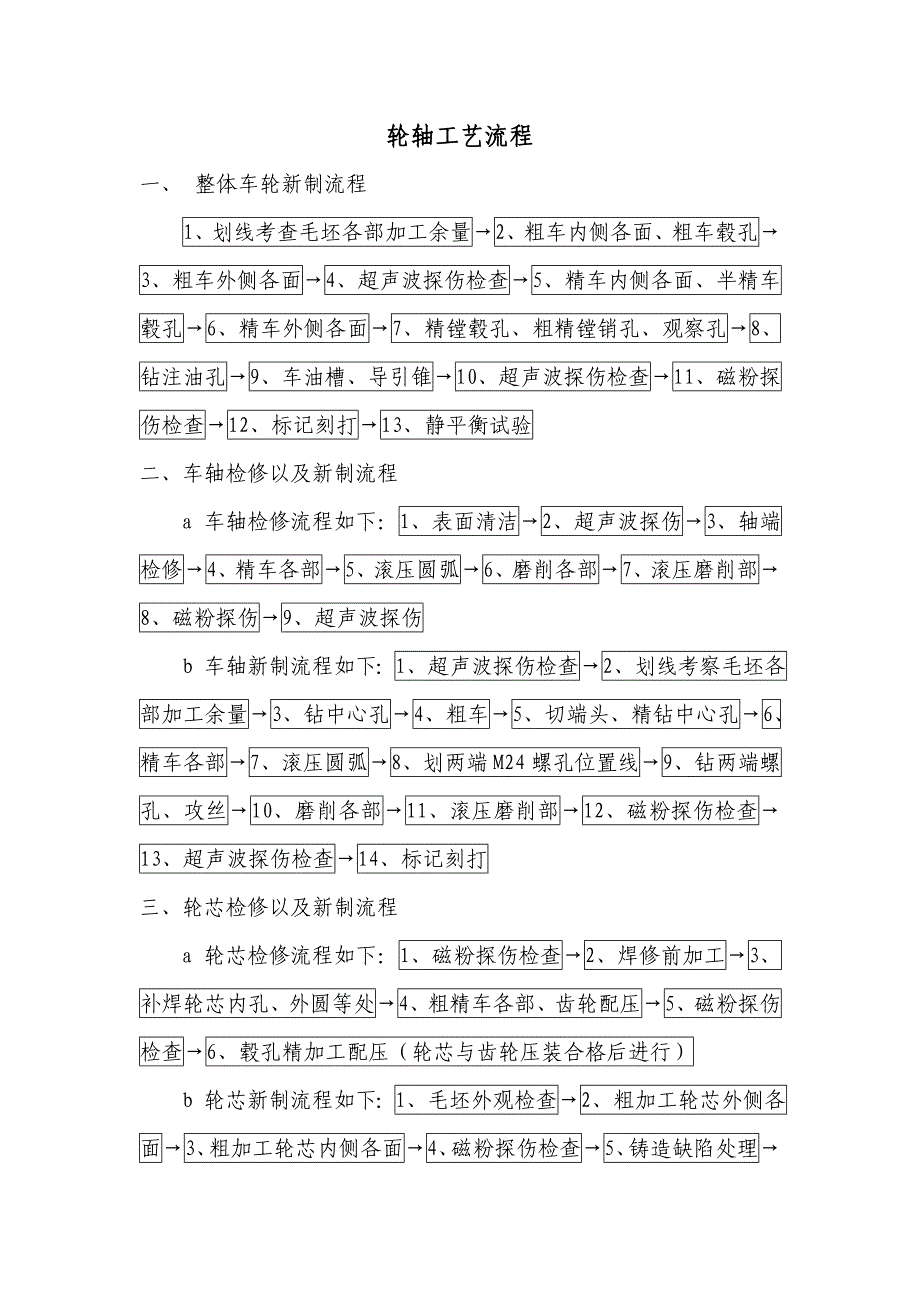 轮轴工艺流程
一、 整体车轮新制流程
1、划线考查毛坯各部加工余量→2、粗车内侧各面、粗车毂孔→
3、粗车外侧各面→4、超声波探伤检查→5、精车内侧各面、半精车
毂孔→6、精车外侧各面→7、精镗毂孔、粗精镗销孔、观察孔→8、
钻注油孔→9、车油槽、导引锥→10、超声波探伤检查→11、磁粉探
伤检查→12、标记刻打→13、静平衡试验
二、车轴检修以及新制流程
a 车轴检修流程如下：1、表面清洁→2、超声波探伤→3、轴端
检修→4、精车各部→5、滚压圆弧→6、磨削各部→7、滚压磨削部→
8、磁粉探伤→9、超声波探伤
b 车轴新制流程如下：1、超声波探伤检查→2、划线考察毛坯各
部加工余量→3、钻中心孔→4、粗车→5、切端头、精钻中心孔→6、
精车各部→7、滚压圆弧→8、划两端M24螺孔位置线→9、钻两端螺
孔、攻丝→10、磨削各部→11、滚压磨削部→12、磁粉探伤检查→
13、超声波探伤检查→14、标记刻打
三、轮芯检修以及新制流程
a 轮芯检修流程如下：1、磁粉探伤检查→2、焊修前加工→3、
补焊轮芯内孔、外圆等处→4、粗精车各部、齿轮配压→5、磁粉探伤
检查→6、毂孔精加工配压（轮芯与齿轮压装合格后进行）
b 轮芯新制流程如下：1、毛坯外观检查→2、粗加工轮芯外侧各
面→3、粗加工轮芯内侧各面→4、磁粉探伤检查→5、铸造缺陷处理→